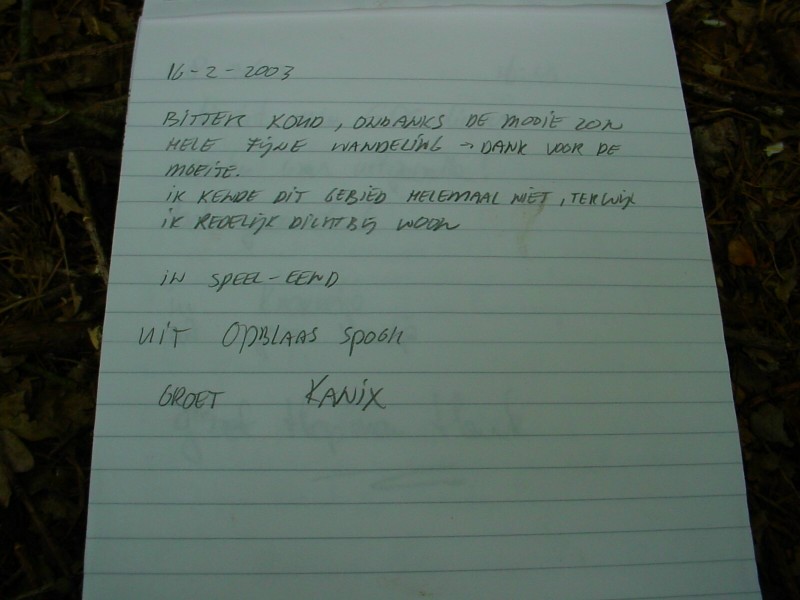 16-2-2003
BITTER KOUD, ONDANKS DE MOOIE ZON
HELE FIJNE WANDELING → DANK VOOR DE
MOEITE.
IK KENDE DIT GEBIED HELEMAAL NIET, TERWIJL
IK REDELIJK DICHTBIJ WOON
IN SPEEL-EEND
UIT OPBLAAS SPOOK
GROET KANIX